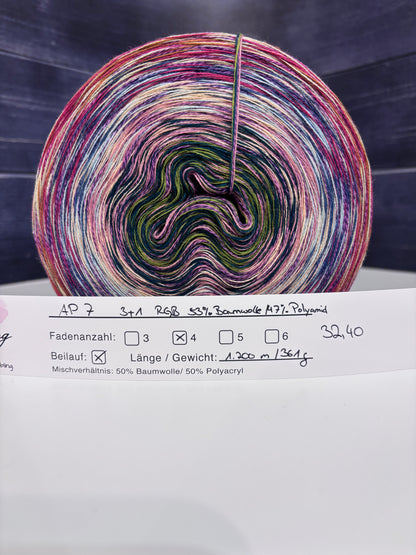 AP 7 3+1 RGB 53% Baumwolle/47% Polyamid
Fadenanzahl: 3 4 5 6 32,40
Beilauf: Länge / Gewicht: 1.200 m / 361g
Mischverhältnis: 50% Baumwolle/ 50% Polyacryl